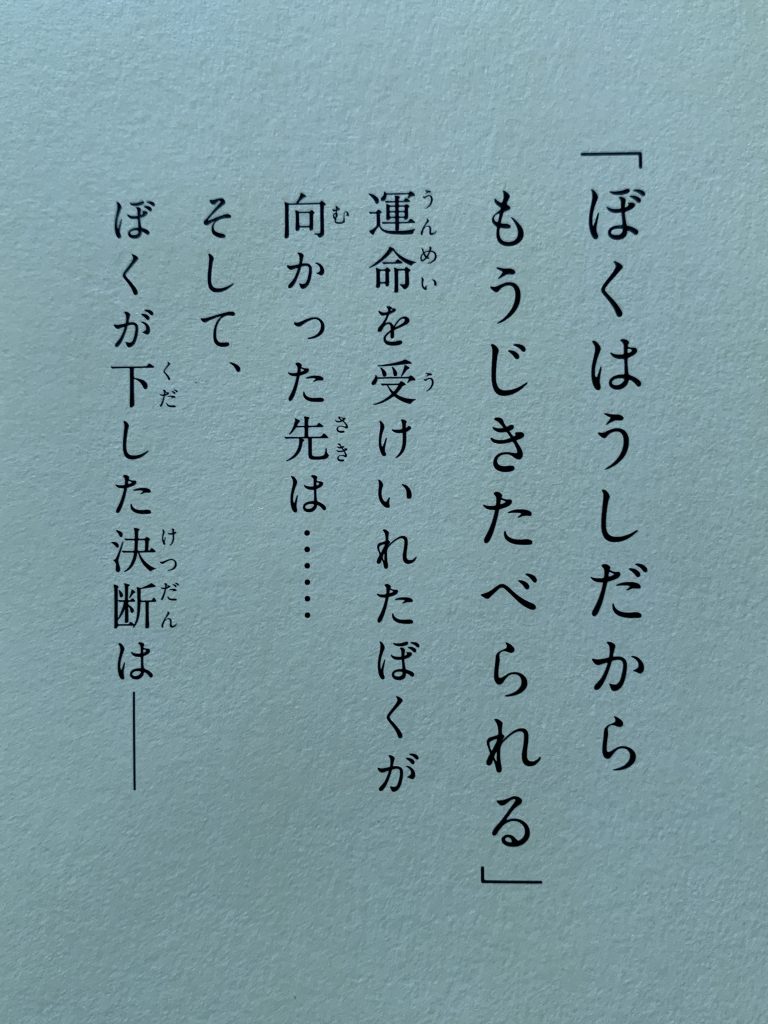 「ぼくはうしだから
もうじきたべられる」
運命を受けいれたぼくが
向かった先は……
そして、
ぼくが下した決断は――